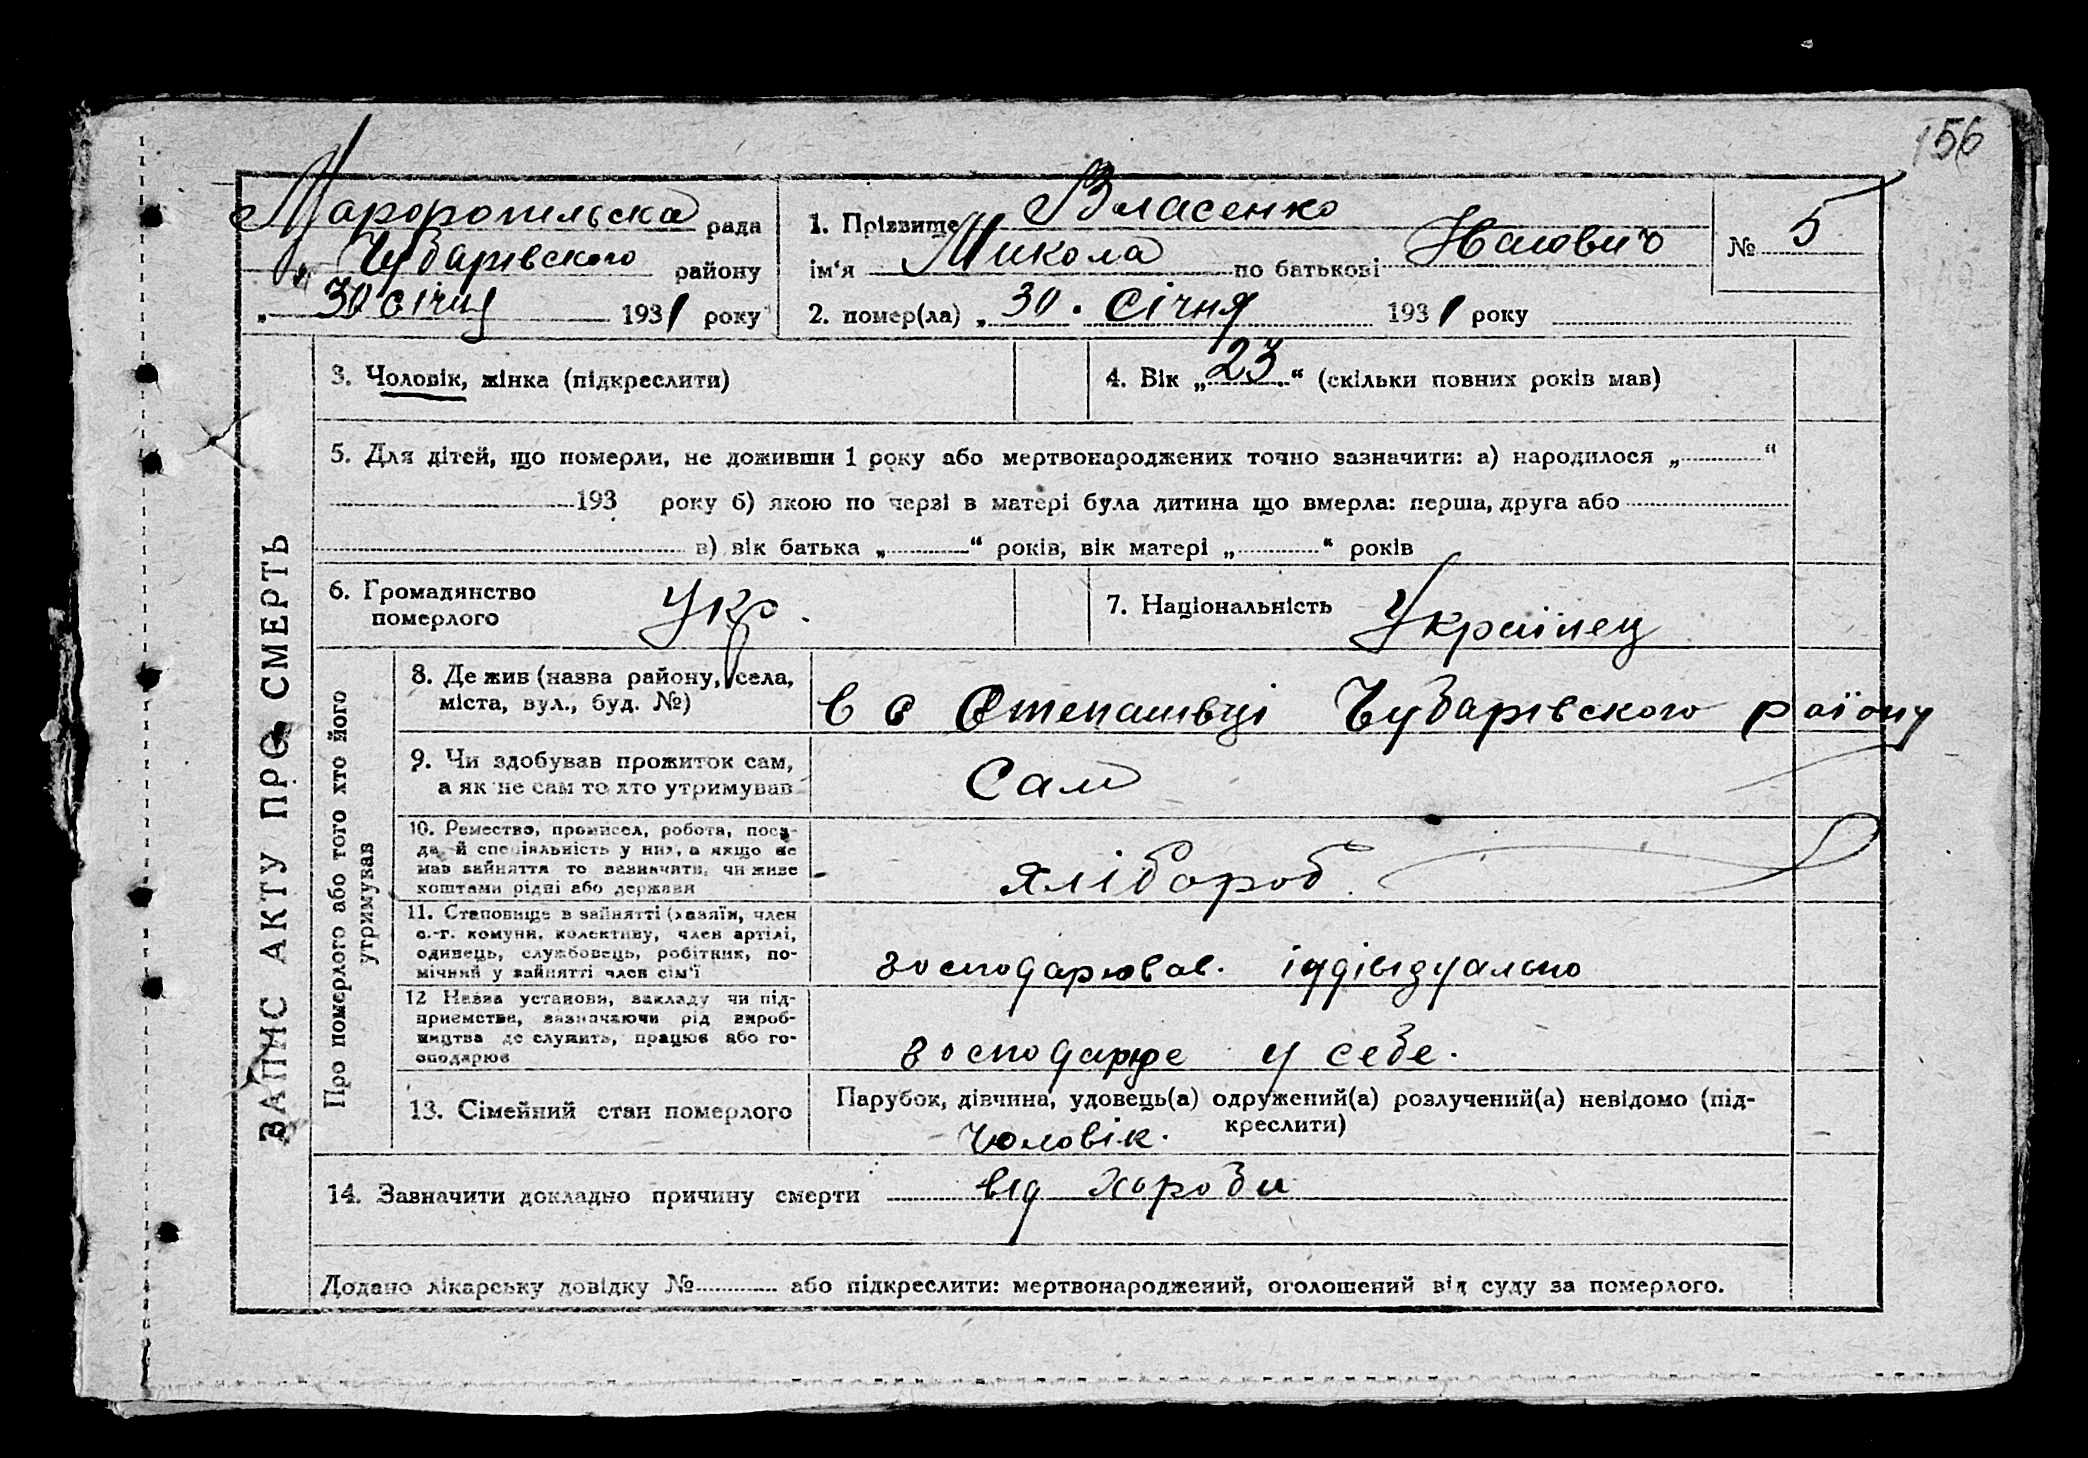 156
Миропопильська рада
Чубарівського району
„ 30 січня 1931 року
1. Прізвище Власенко
ім'я Микола по батькові Ивалович
№ 5
2. помер(ла) „ 30. Січня 1931 року
3. Чоловік, жінка (підкреслити)
4. Вік „ 23 “ (скільки повних років мав)
5. Для дітей, що померли, не доживши 1 року або мертвонароджених точно зазначити: а) народилося „ “
193 року б) якою по черзі в матері була дитина що вмерла: перша, друга або
в) вік батька „ “ років, вік матері „ “ років
6. Громадянство
померлого
Укр.
7. Національність Українец
ЗАПИС АКТУ ПРО СМЕРТЬ
Про померлого або того хто його
утримував
8. Де жив (назва району, села,
міста, вул., буд. №)
в с Степанівці Чубарівского раїону
9. Чи здобував прожиток сам,
а як не сам то хто утримував
Сам
10. Ремество, промисел, робота, поса-
да й спеціяльність у них, а якщо не
мав зайняття то зазначити, чи живе
коштами рідні або держави
хлібороб.
11. Становище в зайнятті (хазяїн, член
с.-г. комуни, колективу, член артілі,
одинець, службовець, робітник, по-
мічний у зайнятті член сім'ї
господарював. індівідуально
12 Назва установи, закладу чи під-
приємства, зазначаючи рід вироб-
ництва де служить, працює або го-
сподарює
господарює у себе.
13. Сімейний стан померлого
Парубок, дівчина, удовець(а) одружений(а) розлучений(а) невідомо (під-
креслити)
Чоловік.
14. Зазначити докладно причину смерти від хороби
Додано лікарську довідку № або підкреслити: мертвонароджений, оголошений від суду за померлого.